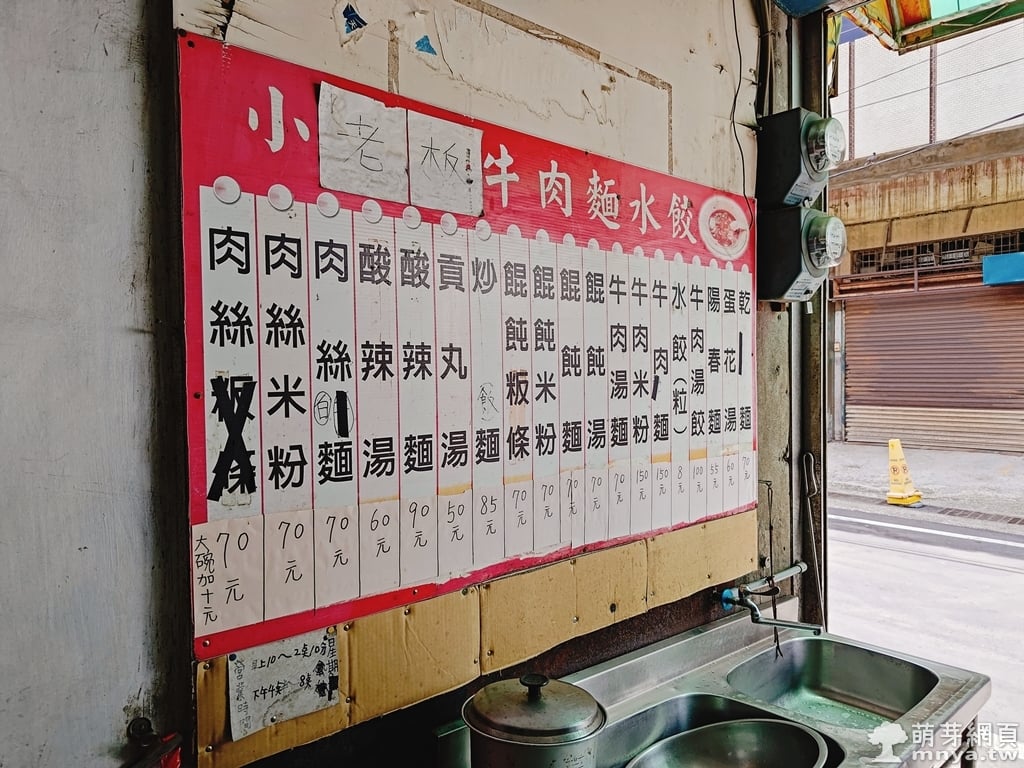 小老板牛肉麵水餃
肉絲 70元
大碗加十元
肉絲米粉 70元
肉絲白麵 70元
酸辣湯 60元
酸辣麵 90元
貢丸湯 50元
炒(飯)麵 85元
餛飩粄條 70元
餛飩米粉 70元
餛飩麵 70元
餛飩湯 70元
牛肉湯麵 70元
牛肉米粉 150元
牛肉麵 150元
水餃(粒) 8元
牛肉湯餃 100元
陽春麵 55元
蛋花湯 60元
乾麵 70元
營業時間
上10~2點10分
下午4點 8點
星期
萌芽網頁
mnya.tw